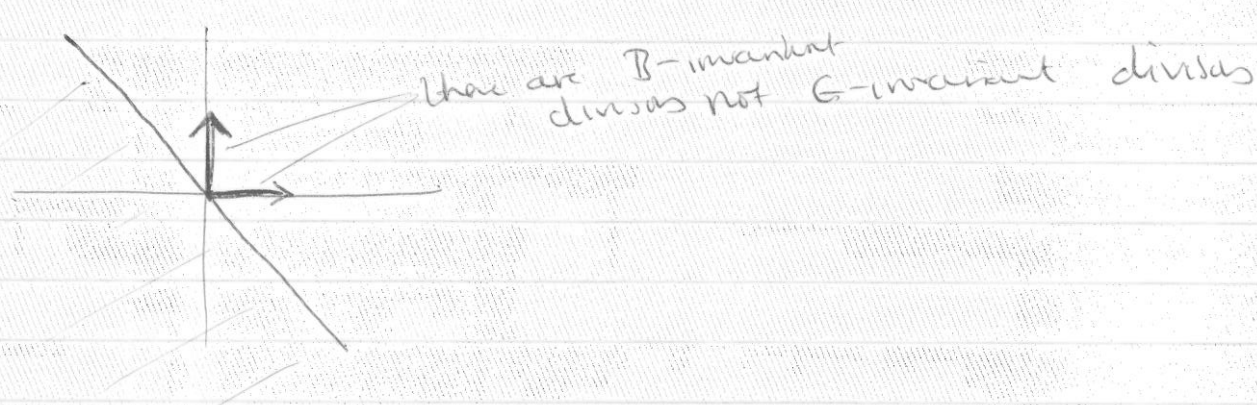 these are B-invariant
divisors not G-invariant divisors